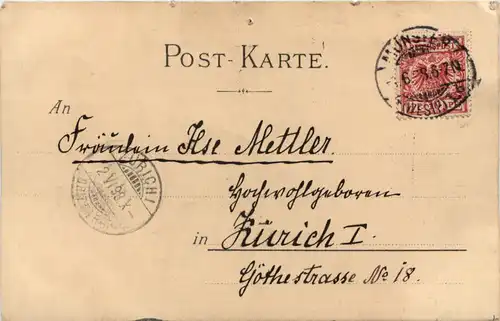 POST-KARTE.
An
Fräulein Ilse Mettler
Hochwohlgeboren
in Zürich I.
Göthestrasse No 18.
MÜNSTER
(WESTF.)
ZÜRICH 1